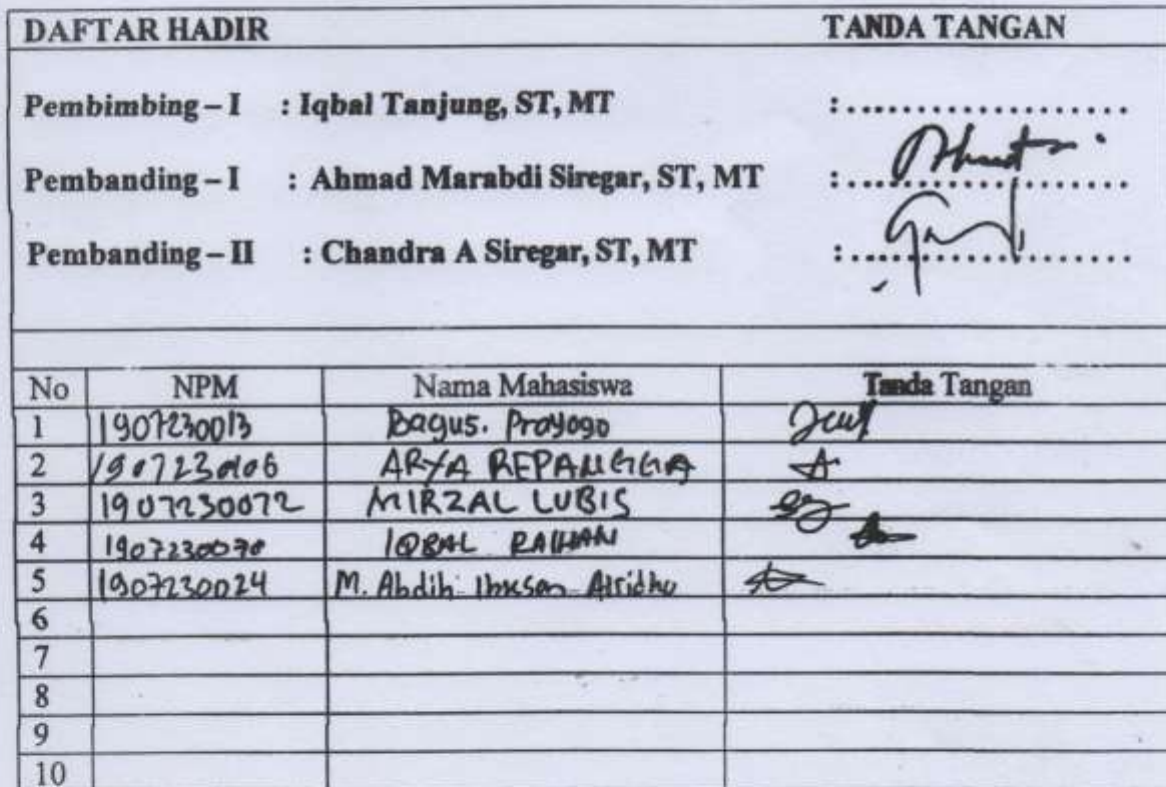 DAFTAR HADIR TANDA TANGAN
Pembimbing – I : Iqbal Tanjung, ST, MT : ....................
Pembanding – I : Ahmad Marabdi Siregar, ST, MT : ....................
Pembanding – II : Chandra A Siregar, ST, MT : ....................
No NPM Nama Mahasiswa Tanda Tangan
1 1907230013 Bagus. Prayogo
2 ARYA REPANGGA
3 1907230072 MIRZAL LUBIS
4 1907230070 IQBAL RAIHAN
5 1907230024 M. Abdih
6
7
8
9
10